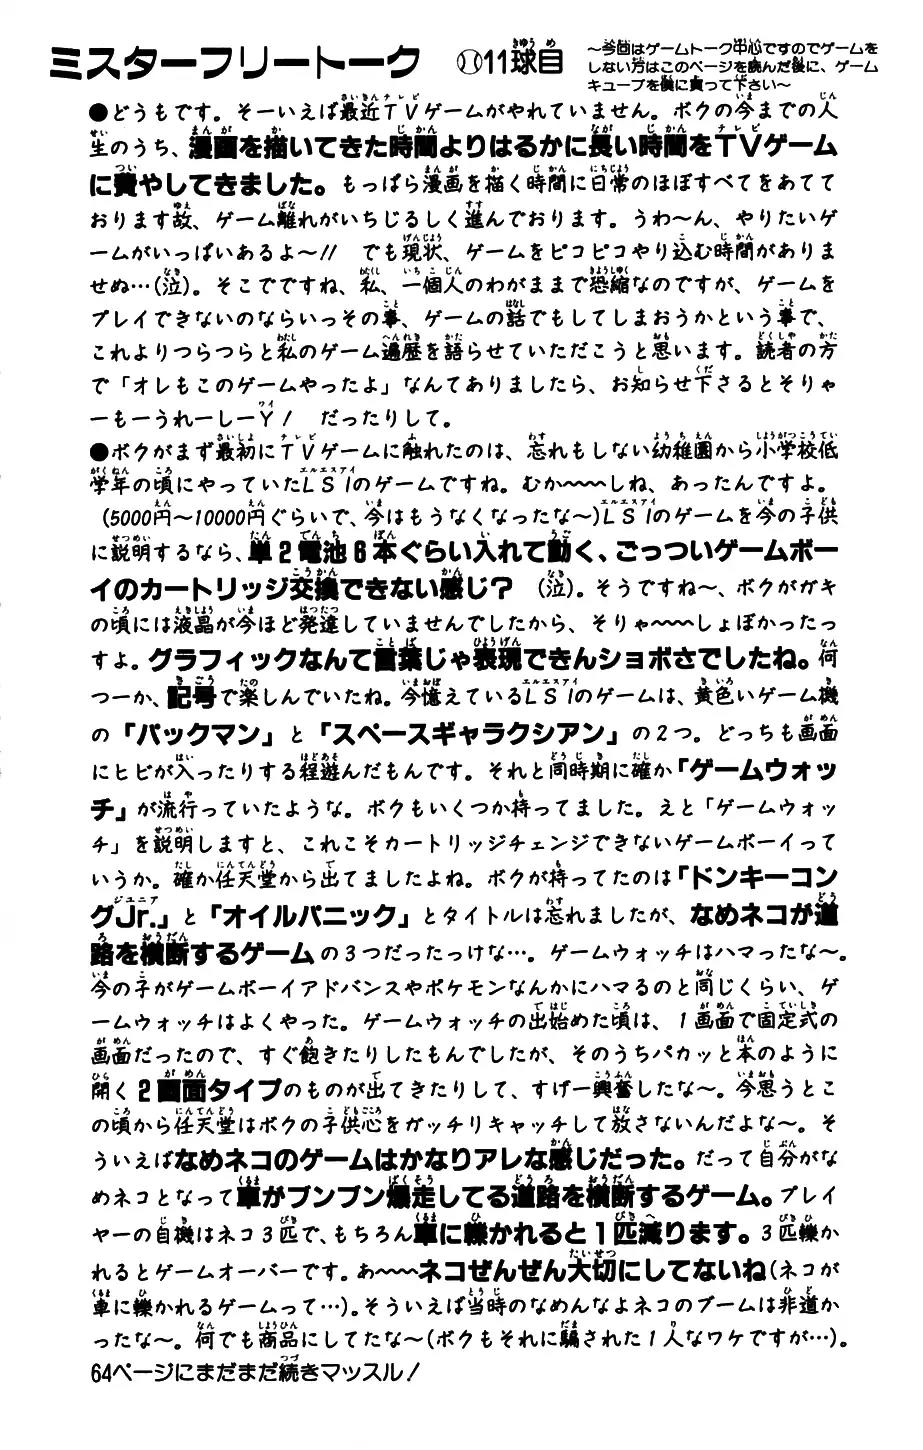 ミスターフリートーク 11球目
～今回はゲームトーク中心ですのでゲームを
しない方はこのページを読んだ後に、ゲーム
キューブを僕に買って下さい～
●どうもです。そーいえば最近TVゲームがやれていません。ボクの今までの人
生のうち、漫画を描いてきた時間よりはるかに長い時間をTVゲーム
に費やしてきました。もっぱら漫画を描く時間に日常のほぼすべてをあてて
おります故、ゲーム離れがいちじるしく進んでおります。うわ～ん、やりたいゲ
ームがいっぱいあるよ～!! でも現状、ゲームをピコピコやり込む時間がありま
せぬ…(泣)。そこでですね、私、一個人のわがままで恐縮なのですが、ゲームを
プレイできないのならいっその事、ゲームの話でもしてしまおうかという事で、
これよりつらつらと私のゲーム遍歴を語らせていただこうと思います。読者の方
で「オレもこのゲームやったよ」なんてありましたら、お知らせ下さるとそりゃ
ーもーうれーしーY! だったりして。
●ボクがまず最初にTVゲームに触れたのは、忘れもしない幼稚園から小学校低
学年の頃にやっていたLSIのゲームですね。むか～～～しね、あったんですよ。
(5000円～10000円ぐらいで、今はもうなくなったな～)LSIのゲームを今の子供
に説明するなら、単2電池6本ぐらい入れて動く、ごっついゲームボー
イのカートリッジ交換できない感じ? (泣)。そうですね～、ボクがガキ
の頃には液晶が今ほど発達していませんでしたから、そりゃ～～～しょぼかったっ
すよ。グラフィックなんて言葉じゃ表現できんショボさでしたね。何
つーか、記号で楽しんでいたね。今憶えているLSIのゲームは、黄色いゲーム機
の「パックマン」と「スペースギャラクシアン」の2つ。どっちも画面
にヒビが入ったりする程遊んだもんです。それと同時期に確か「ゲームウォッ
チ」が流行っていたような。ボクもいくつか持ってました。えと「ゲームウォッ
チ」を説明しますと、これこそカートリッジチェンジできないゲームボーイって
いうか。確か任天堂から出てましたよね。ボクが持ってたのは「ドンキーコン
グJr.」と「オイルパニック」とタイトルは忘れましたが、なめネコが道
路を横断するゲームの3つだったっけな…。ゲームウォッチはハマったな～。
今の子がゲームボーイアドバンスやポケモンなんかにハマるのと同じくらい、ゲ
ームウォッチはよくやった。ゲームウォッチの出始めた頃は、1画面で固定式の
画面だったので、すぐ飽きたりしたもんでしたが、そのうちパカッと本のように
開く2画面タイプのものが出てきたりして、すげー興奮したな～。今思うとこ
の頃から任天堂はボクの子供心をガッチリキャッチして放さないんだよな～。そ
ういえばなめネコのゲームはかなりアレな感じだった。だって自分がな
めネコとなって車がブンブン爆走してる道路を横断するゲーム。プレイ
ヤーの自機はネコ3匹で、もちろん車に轢かれると1匹減ります。3匹轢か
れるとゲームオーバーです。あ～～～ネコぜんぜん大切にしてないね(ネコが
車に轢かれるゲームって…)。そういえば当時のなめんなよネコのブームは非道か
ったな～。何でも商品にしてたな～(ボクもそれに騙された1人なワケですが…)。
64ページにまだまだ続きマッスル!